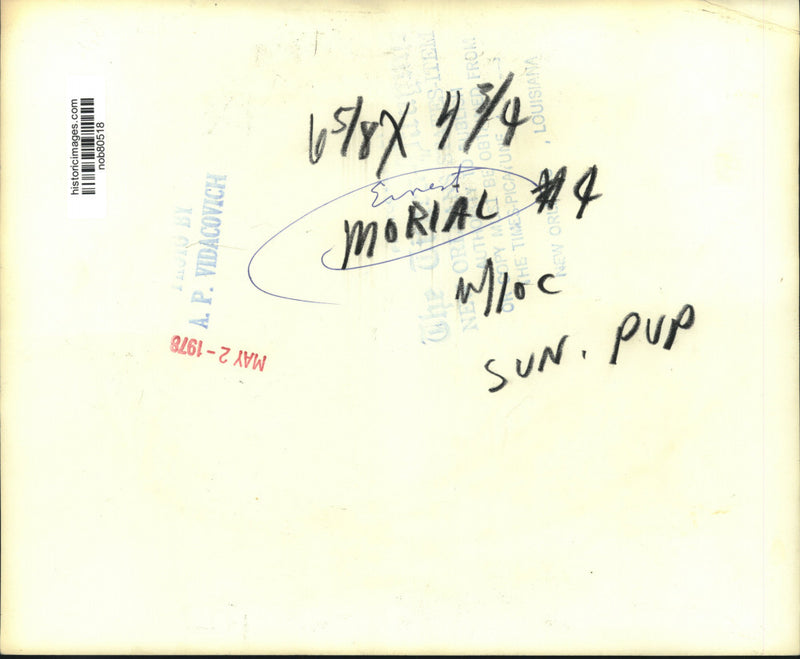 historicimages.com
nob80518
PHOTO BY
A. P. VIDACOVICH
MAY 2 - 1978
6 5/8 X 4 3/4
Ernest
MORIAL #4
w/loc
SUN. PVP
The Times-Picayune
STATES-ITEM
NEW ORLEANS
AUTHORITY TO
COPY MUST BE OBTAINED FROM
THE TIMES-PICAYUNE
NEW ORLEANS, LOUISIANA